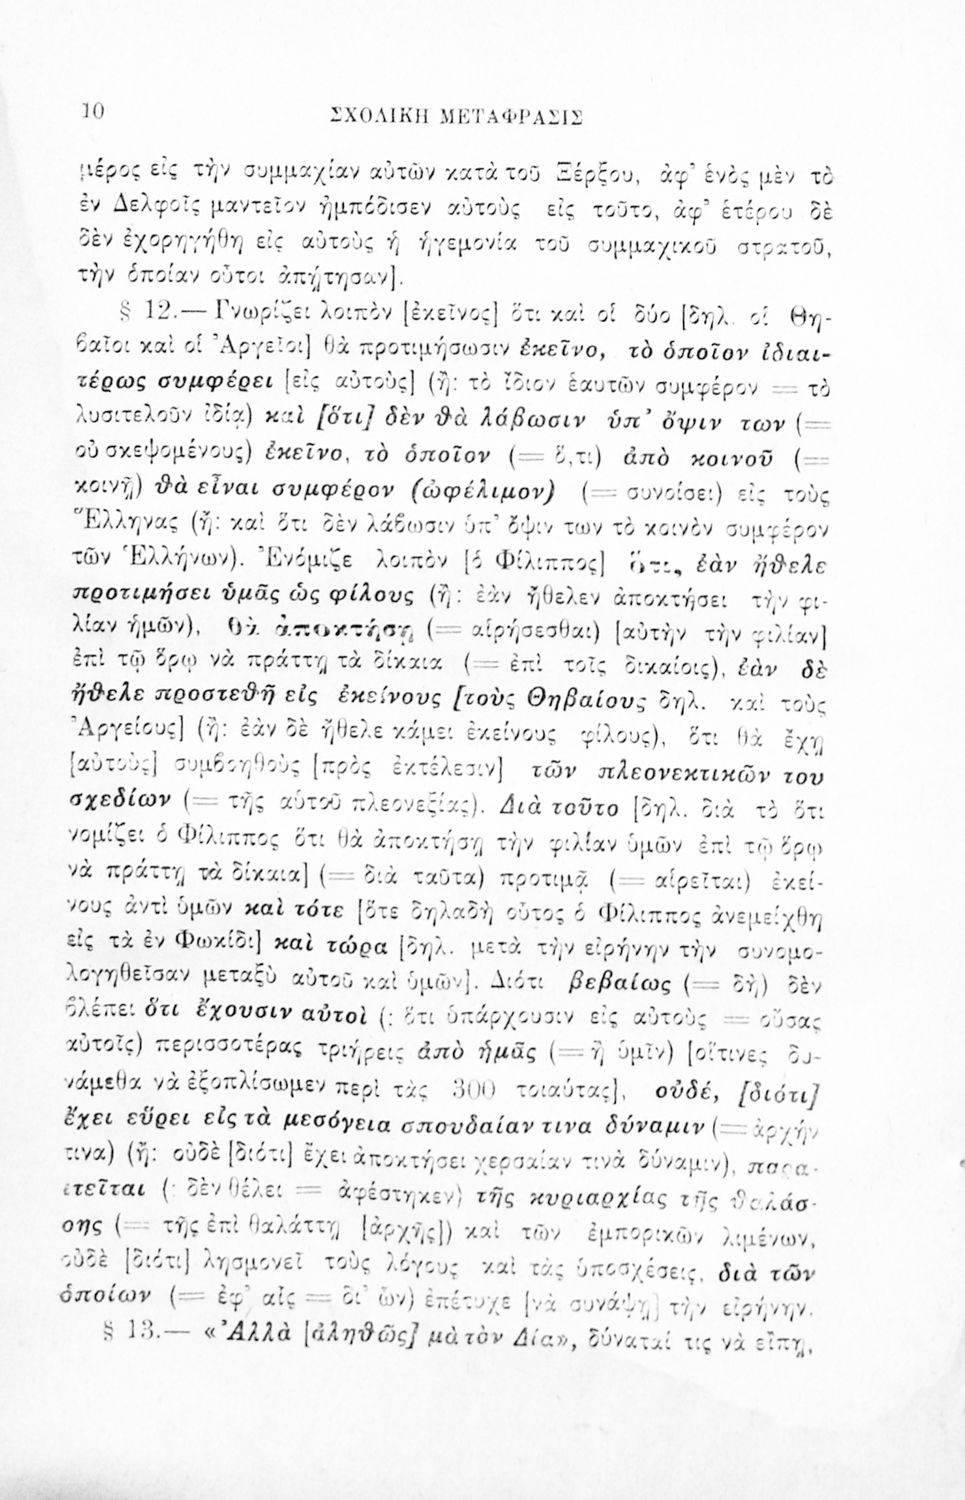 10
ΣΧΟΛΙΚΗ ΜΕΤΑΦΡΑΣΙΣ
μέρος εἰς τὴν συμμαχίαν αὐτῶν κατὰ τοῦ Ξέρξου, ἀφ' ἑνὸς μὲν τὸ
ἐν Δελφοῖς μαντεῖον ἠμπόδισεν αὐτοὺς εἰς τοῦτο, ἀφ' ἑτέρου δὲ
δὲν ἐχορηγήθη εἰς αὐτοὺς ἡ ἡγεμονία τοῦ συμμαχικοῦ στρατοῦ,
τὴν ὁποίαν οὗτοι ἀπῄτησαν].
§ 12.— Γνωρίζει λοιπὸν [ἐκεῖνος] ὅτι καὶ οἱ δύο [δηλ. οἱ Θη-
βαῖοι καὶ οἱ Ἀργεῖοι] θὰ προτιμήσωσιν ἐκεῖνο, τὸ ὁποῖον ἰδιαι-
τέρως συμφέρει [εἰς αὐτοὺς] (ἤ: τὸ ἴδιον ἑαυτῶν συμφέρον = τὸ
λυσιτελοῦν ἰδίᾳ) καὶ [ὅτι] δὲν θὰ λάβωσιν ὑπ' ὄψιν των (=
οὐ σκεψομένους) ἐκεῖνο, τὸ ὁποῖον (= ὅ,τι) ἀπὸ κοινοῦ (=
κοινῇ) θὰ εἶναι συμφέρον (ὠφέλιμον) (= συνοίσει) εἰς τοὺς
Ἕλληνας (ἤ: καὶ ὅτι δὲν λάβωσιν ὑπ' ὄψιν των τὸ κοινὸν συμφέρον
τῶν Ἑλλήνων). Ἐνόμιζε λοιπὸν [ὁ Φίλιππος] ὅτι, ἐὰν ἤθελε
προτιμήσει ὑμᾶς ὡς φίλους (ἤ: ἐὰν ἤθελεν ἀποκτήσει τὴν φι-
λίαν ἡμῶν), θὰ ἀποκτήσῃ (= αἱρήσεσθαι) [αὐτὴν τὴν φιλίαν]
ἐπὶ τῷ ὅρῳ νὰ πράττῃ τὰ δίκαια (= ἐπὶ τοῖς δικαίοις), ἐὰν δὲ
ἤθελε προστεθῆ εἰς ἐκείνους [τοὺς Θηβαίους δηλ. καὶ τοὺς
Ἀργείους] (ἤ: ἐὰν δὲ ἤθελε κάμει ἐκείνους φίλους), ὅτι θὰ ἔχῃ
[αὐτοὺς] συμβοηθοὺς [πρὸς ἐκτέλεσιν] τῶν πλεονεκτικῶν του
σχεδίων (= τῆς αὑτοῦ πλεονεξίας). Διὰ τοῦτο [δηλ. διὰ τὸ ὅτι
νομίζει ὁ Φίλιππος ὅτι θὰ ἀποκτήσῃ τὴν φιλίαν ὑμῶν ἐπὶ τῷ ὅρῳ
νὰ πράττῃ τὰ δίκαια] (= διὰ ταῦτα) προτιμᾷ (= αἱρεῖται) ἐκεί-
νους ἀντὶ ὑμῶν καὶ τότε [ὅτε δηλαδὴ οὗτος ὁ Φίλιππος ἀνεμείχθη
εἰς τὰ ἐν Φωκίδι] καὶ τώρα [δηλ. μετὰ τὴν εἰρήνην τὴν συνομο-
λογηθεῖσαν μεταξὺ αὐτοῦ καὶ ὑμῶν]. Διότι βεβαίως (= δὴ) δὲν
βλέπει ὅτι ἔχουσιν αὐτοὶ (: ὅτι ὑπάρχουσιν εἰς αὐτοὺς = οὔσας
αὐτοῖς) περισσοτέρας τριήρεις ἀπὸ ἡμᾶς (= ἢ ὑμῖν) [οἵτινες δυ-
νάμεθα νὰ ἐξοπλίσωμεν περὶ τὰς 300 τοιαύτας], οὐδέ, [διότι]
ἔχει εὕρει εἰς τὰ μεσόγεια σπουδαίαν τινα δύναμιν (= ἀρχήν
τινα) (ἤ: οὐδὲ [διότι] ἔχει ἀποκτήσει χερσαίαν τινὰ δύναμιν), παρα-
ιτεῖται (: δὲν θέλει = ἀφέστηκεν) τῆς κυριαρχίας τῆς θαλάσ-
σης (= τῆς ἐπὶ θαλάττῃ [ἀρχῆς]) καὶ τῶν ἐμπορικῶν λιμένων,
οὐδὲ [διότι] λησμονεῖ τοὺς λόγους καὶ τὰς ὑποσχέσεις, διὰ τῶν
ὁποίων (= ἐφ' αἷς = δι' ὧν) ἐπέτυχε [νὰ συνάψῃ] τὴν εἰρήνην.
§ 13.— «Ἀλλὰ [ἀληθῶς] μὰ τὸν Δία», δύναταί τις νὰ εἴπῃ,